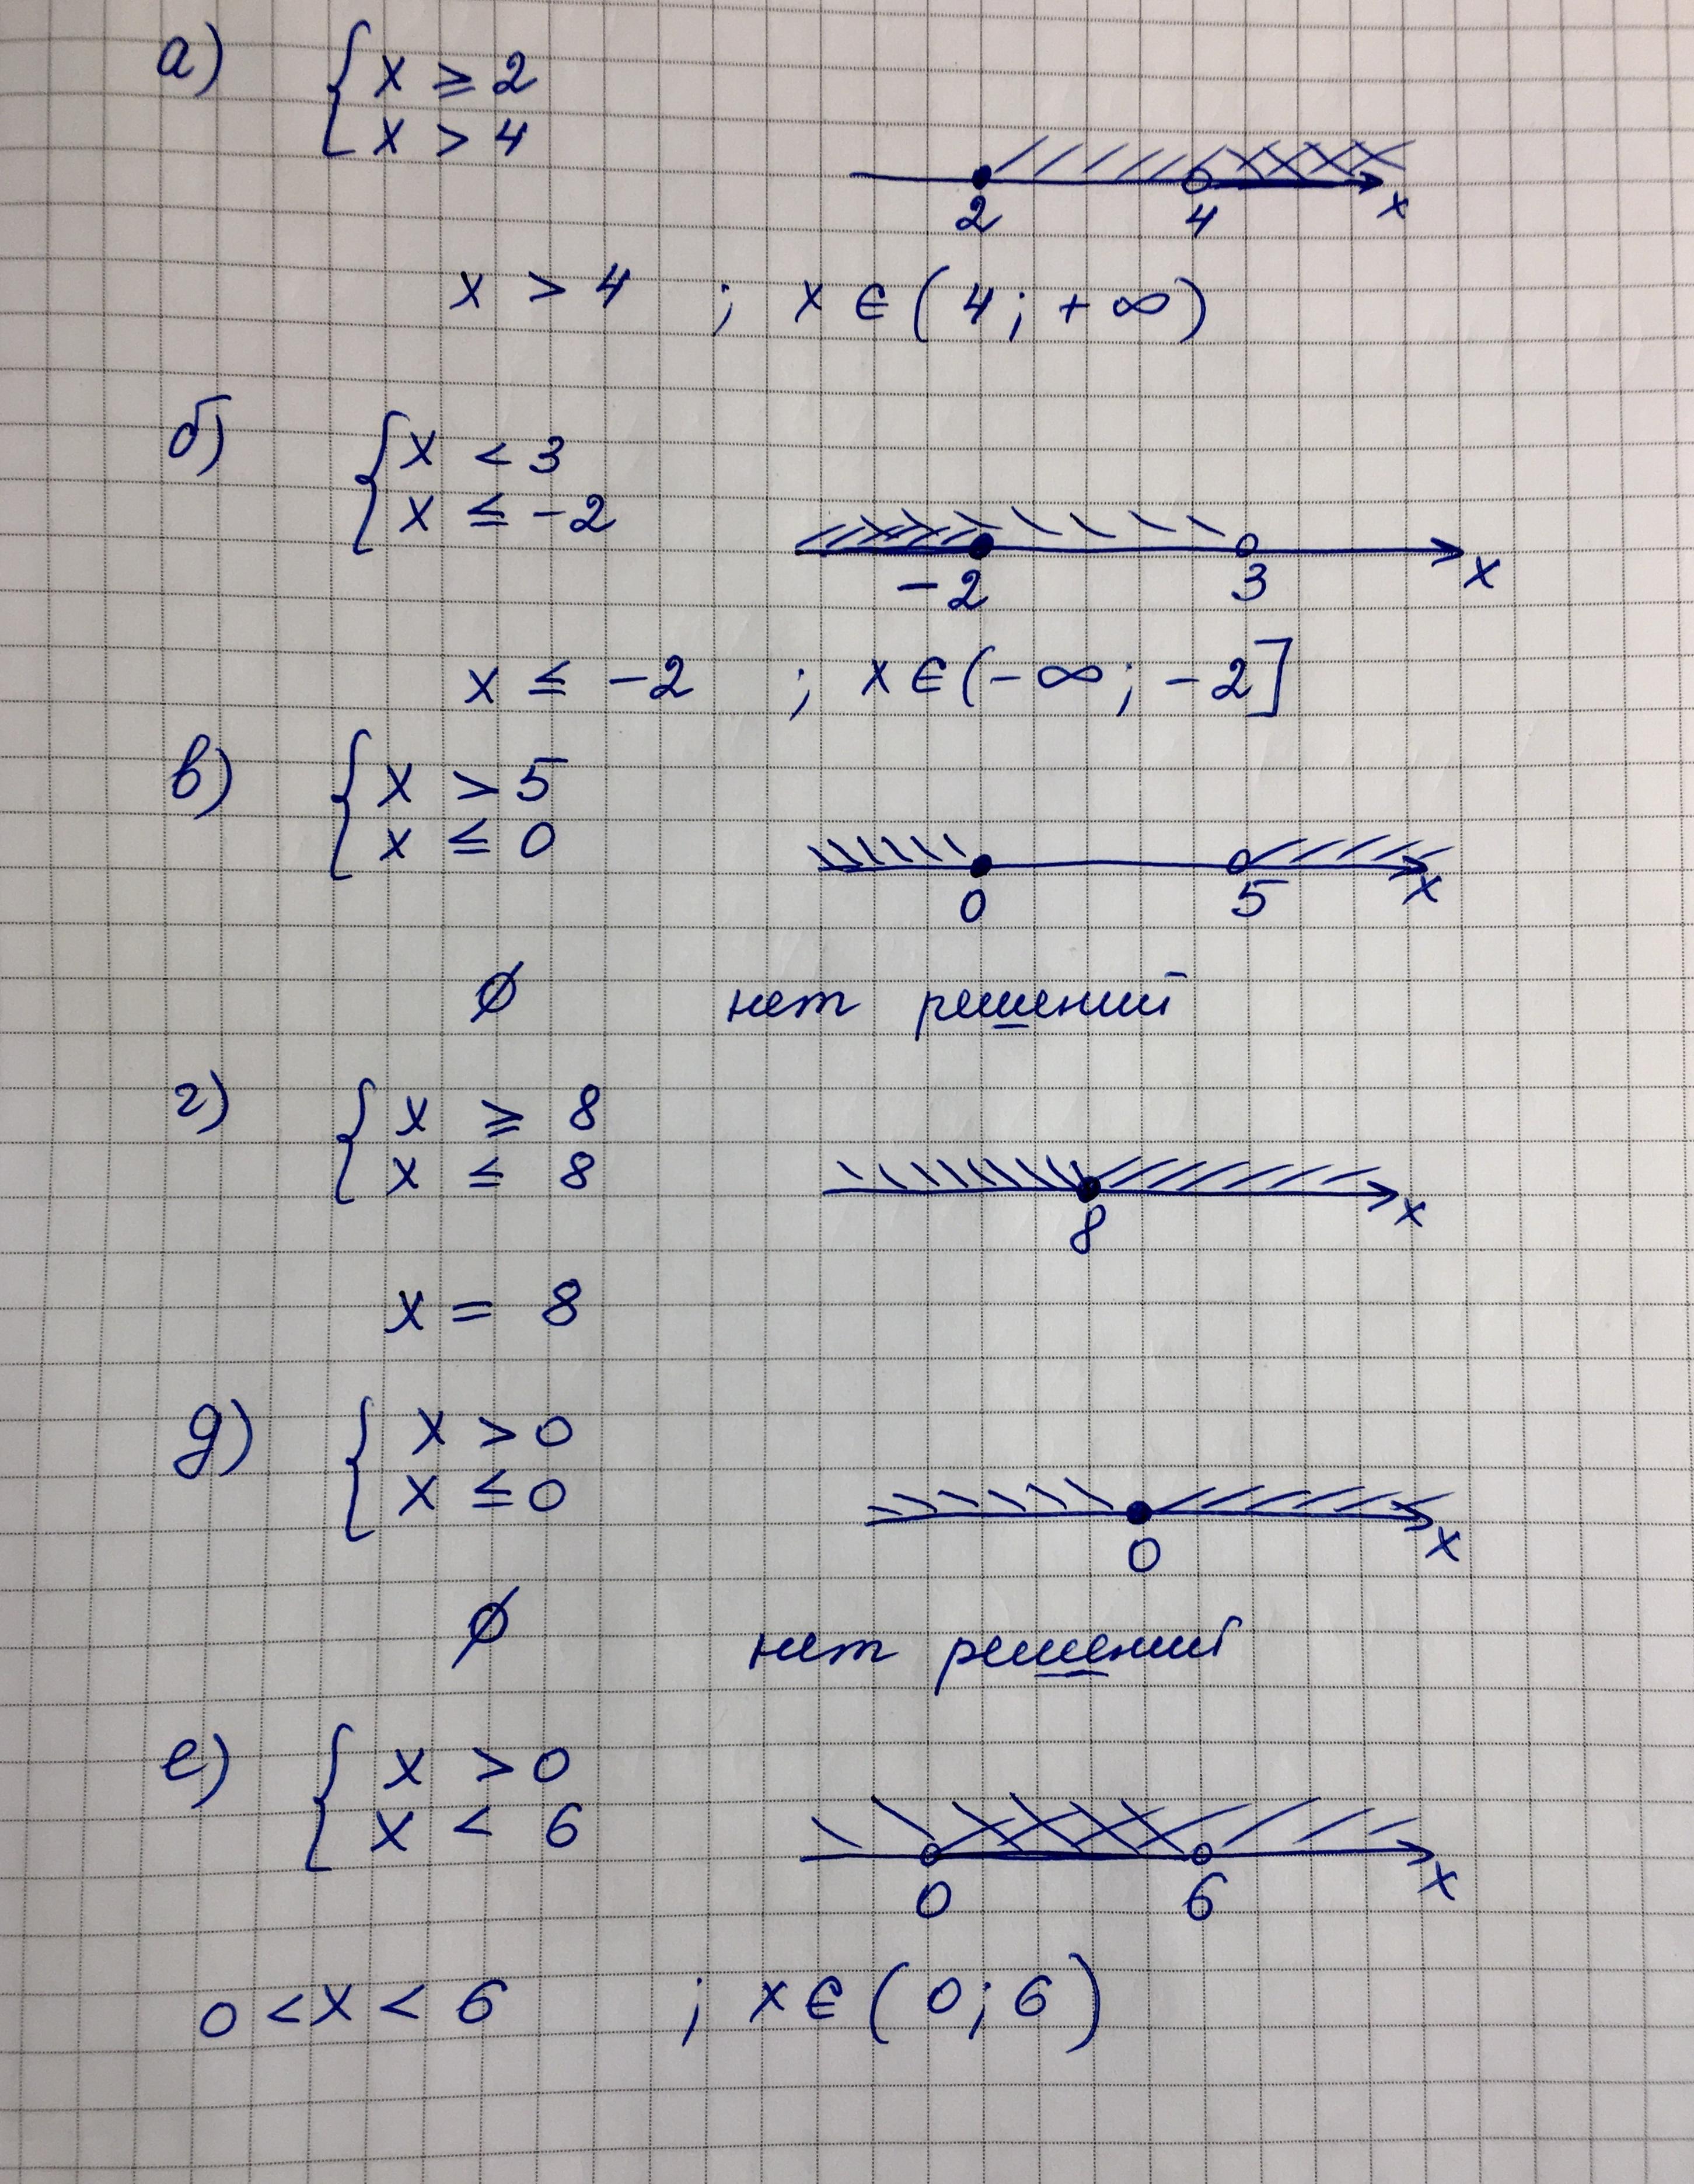 а) { x ⩾ 2
x > 4
2 4 x
x > 4 ; x ∈ (4; +∞)
б) { x < 3
x ≤ -2
-2 3 x
x ≤ -2 ; x ∈ (-∞; -2]
в) { x > 5
x ≤ 0
0 5 x
∅ нет решений
г) { x ⩾ 8
x ≤ 8
8 x
x = 8
д) { x > 0
x ≤ 0
0 x
∅ нет решений
е) { x > 0
x < 6
0 6 x
0 < x < 6 ; x ∈ (0; 6)